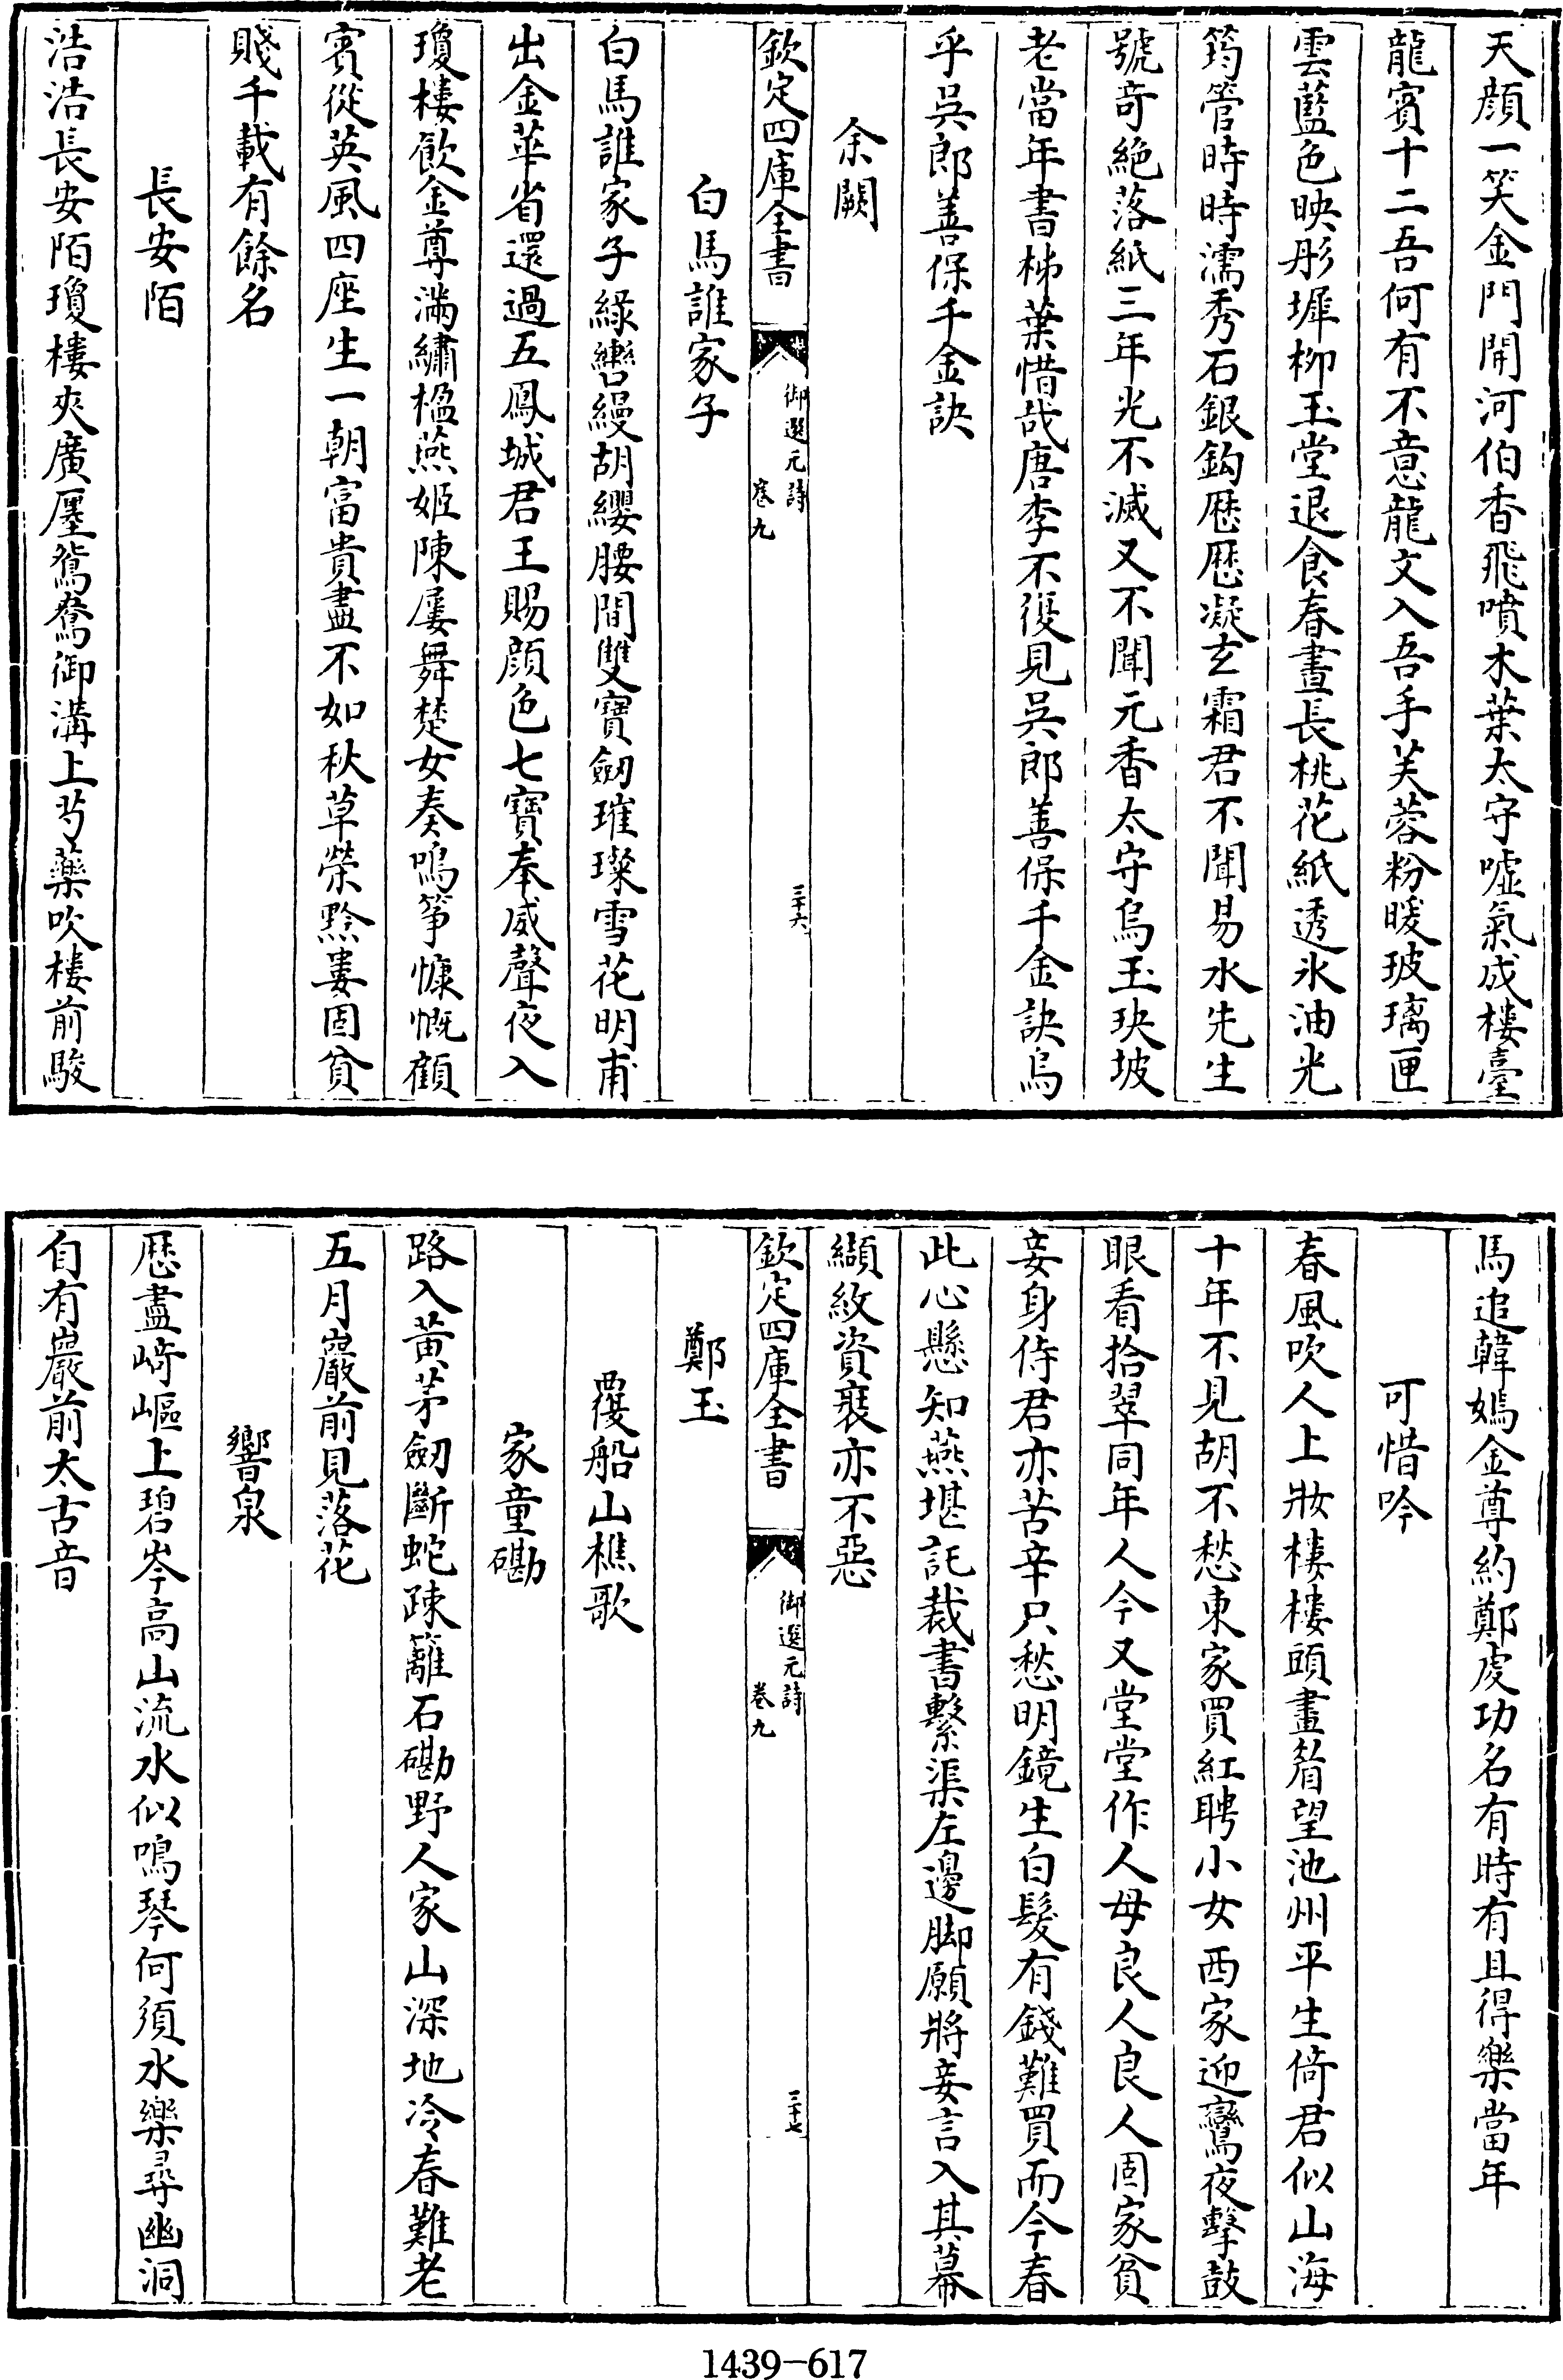 天顔一笑金門開河伯香飛噴木葉太守噓氣成樓臺
龍賓十二吾何有不意龍文入吾手芙蓉粉暖玻璃匣
雲藍色映彤墀柳玉堂退食春晝長桃花紙透氷油光
筠管時時濡秀石銀鈎歴歴凝玄霜君不聞易水先生
號竒絶落紙三年光不滅又不聞元香太守烏玉玦坡
老當年書柹葉惜哉唐李不復見吳郎善保千金訣烏
乎吳郎善保千金訣
余闕
欽定四庫全書
御選元詩
卷九
三十六
白馬誰家子
白馬誰家子綠轡縵胡纓腰間雙寶劒璀璨雪花明甫
出金華省還過五鳳城君王賜顔色七寶奉威聲夜入
瓊樓飲金尊滿繡楹燕姬陳屢舞楚女奏鳴箏慷慨顧
賓從英風四座生一朝富貴盡不如秋草榮黔婁固貧
賤千載有餘名
長安陌
浩浩長安陌瓊樓夾廣廛鴛鴦御溝上芍藥吹樓前駿
馬追韓嫣金尊約鄭虔功名有時有且得樂當年
可惜吟
春風吹人上妝樓樓頭畫眉望池州平生倚君似山海
十年不見胡不愁東家買紅聘小女西家迎鸞夜擊鼓
眼看拾翠同年人今又堂堂作人母良人良人固家貧
妾身侍君亦苦辛只愁明鏡生白髮有錢難買而今春
此心懸知燕堪託裁書繫渠左邊脚願將妾言入其幕
纈紋資褻亦不惡
欽定四庫全書
御選元詩
卷九
三十七
鄭玉
覆船山樵歌
家童磡
路入黃茅劒斷蛇疎籬石磡野人家山深地冷春難老
五月巖前見落花
響泉
歴盡﨑嶇上碧岑高山流水似鳴琴何須水樂尋幽洞
自有巖前太古音
1439-617